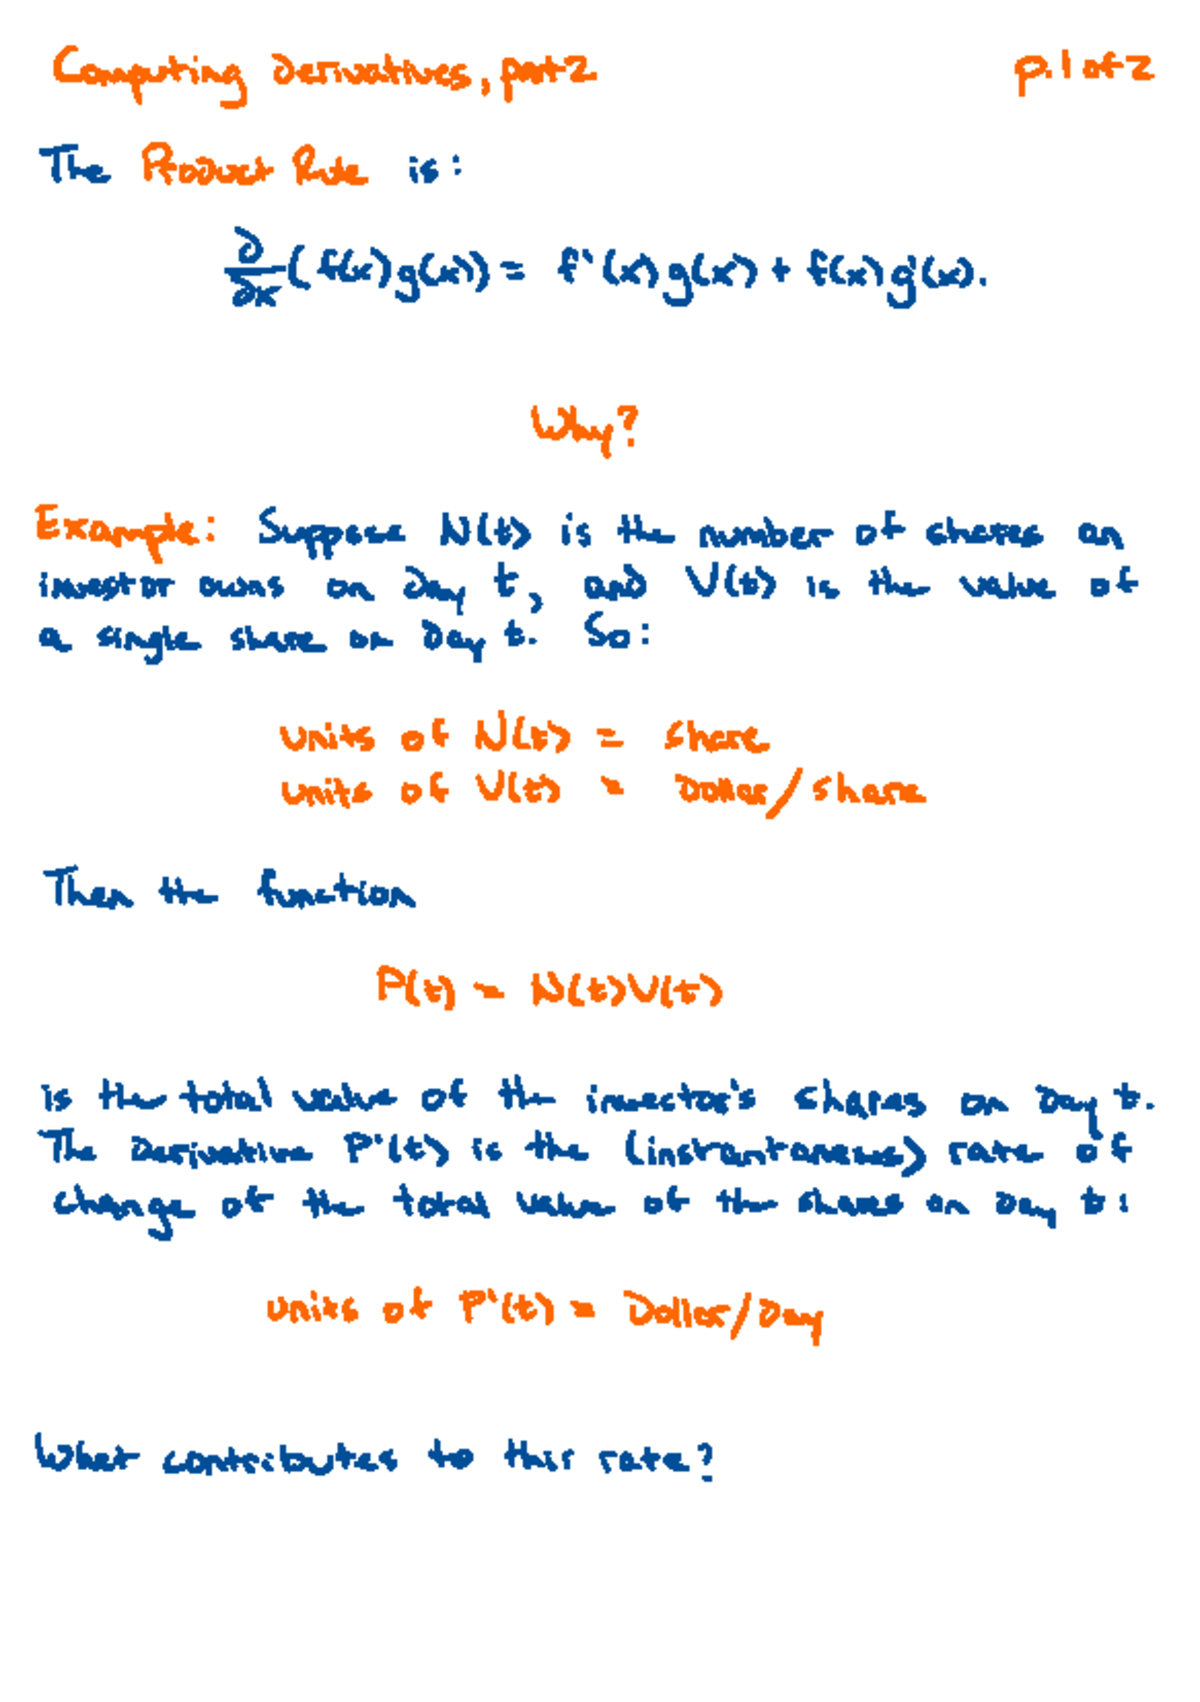 Computing Derivatives, part 2
p. 1 of 2
The Product Rule is:
d/dx (f(x)g(x)) = f'(x)g(x) + f(x)g'(x).
Why?
Example: Suppose N(t) is the number of shares an
investor owns on day t, and V(t) is the value of
a single share on day t. So:
units of N(t) = share
units of V(t) = Dollar/share
Then the function
P(t) = N(t)V(t)
is the total value of the investor's shares on day t.
The Derivative P'(t) is the (instantaneous) rate of
change of the total value of the shares on day t:
units of P'(t) = Dollar/Day
What contributes to this rate?